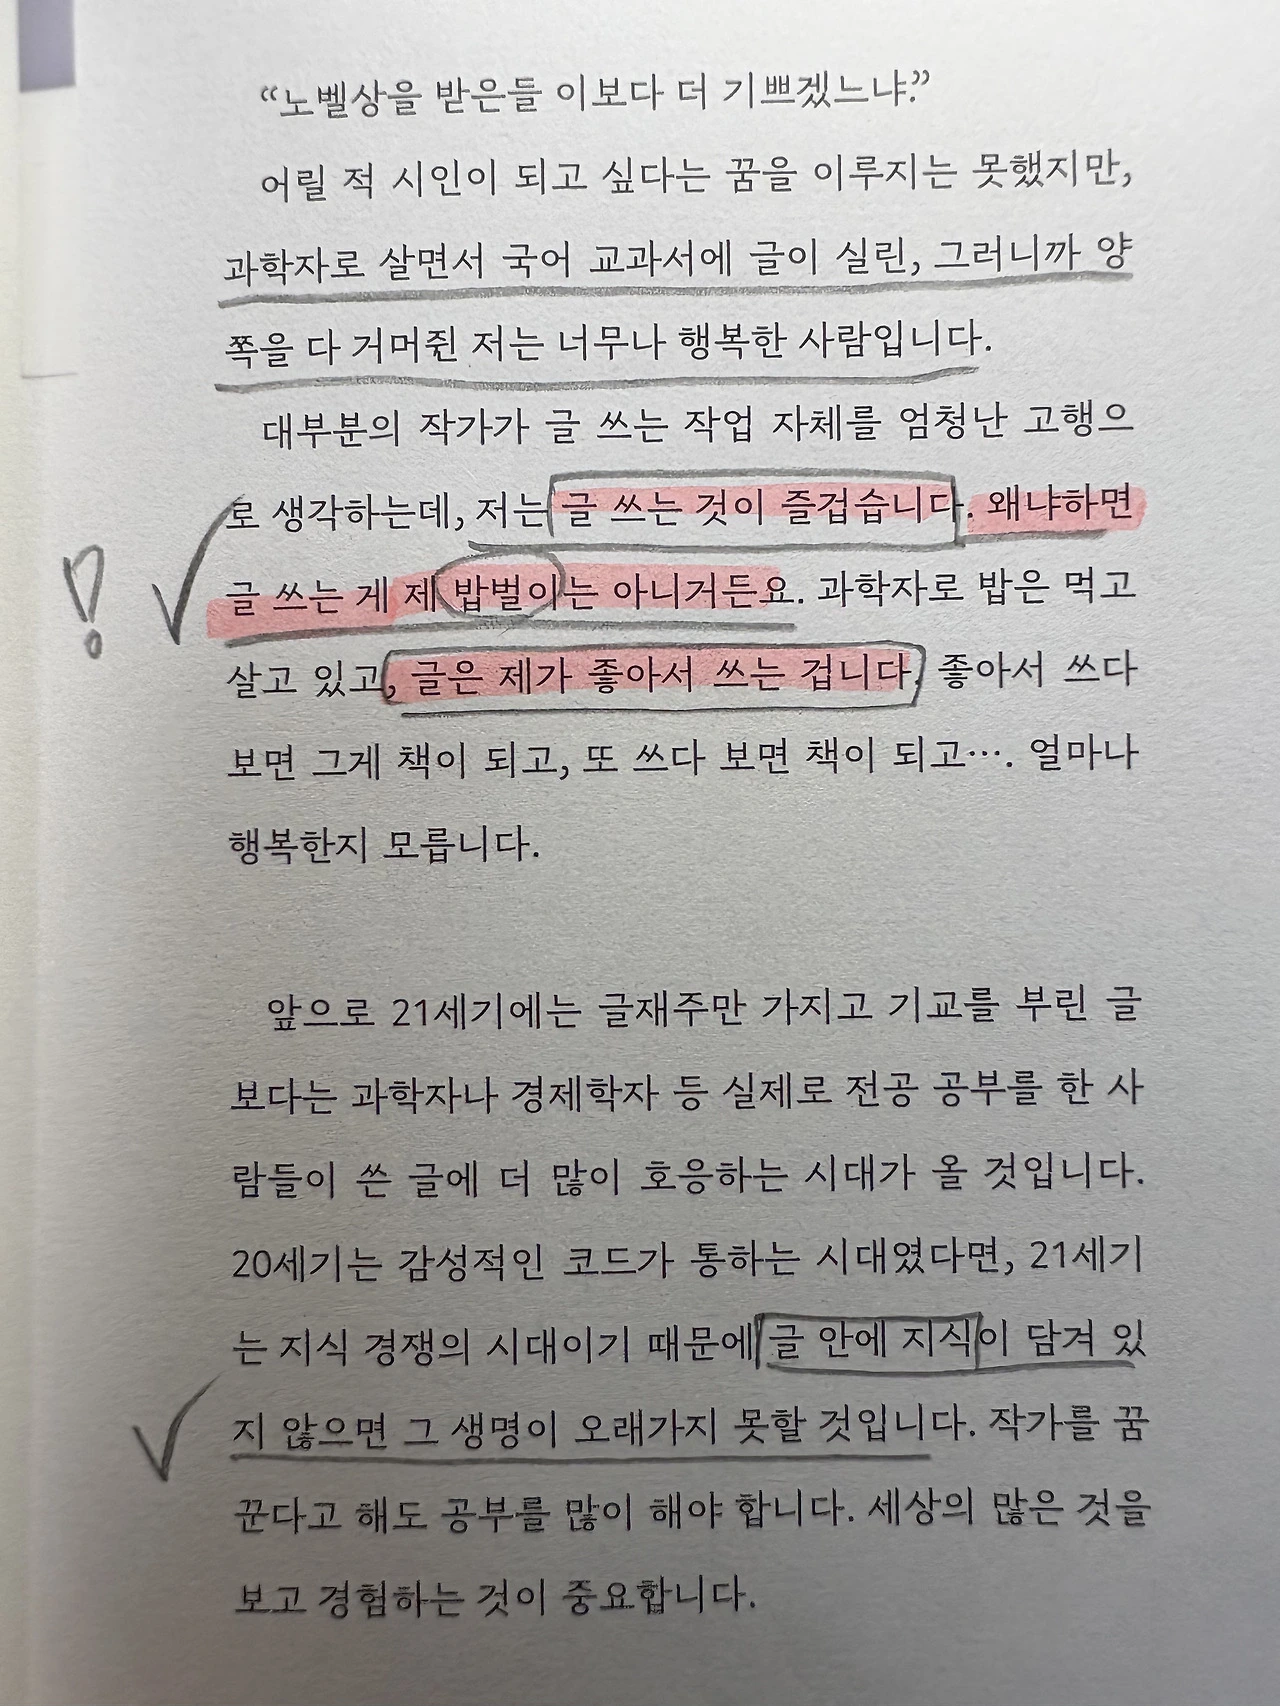 “노벨상을 받은들 이보다 더 기쁘겠느냐.”
어릴 적 시인이 되고 싶다는 꿈을 이루지는 못했지만,
과학자로 살면서 국어 교과서에 글이 실린, 그러니까 양
쪽을 다 거머쥔 저는 너무나 행복한 사람입니다.
대부분의 작가가 글 쓰는 작업 자체를 엄청난 고행으
로 생각하는데, 저는 글 쓰는 것이 즐겁습니다. 왜냐하면
글 쓰는 게 제 밥벌이는 아니거든요. 과학자로 밥은 먹고
살고 있고, 글은 제가 좋아서 쓰는 겁니다. 좋아서 쓰다
보면 그게 책이 되고, 또 쓰다 보면 책이 되고…. 얼마나
행복한지 모릅니다.
앞으로 21세기에는 글재주만 가지고 기교를 부린 글
보다는 과학자나 경제학자 등 실제로 전공 공부를 한 사
람들이 쓴 글에 더 많이 호응하는 시대가 올 것입니다.
20세기는 감성적인 코드가 통하는 시대였다면, 21세기
는 지식 경쟁의 시대이기 때문에 글 안에 지식이 담겨 있
지 않으면 그 생명이 오래가지 못할 것입니다. 작가를 꿈
꾼다고 해도 공부를 많이 해야 합니다. 세상의 많은 것을
보고 경험하는 것이 중요합니다.